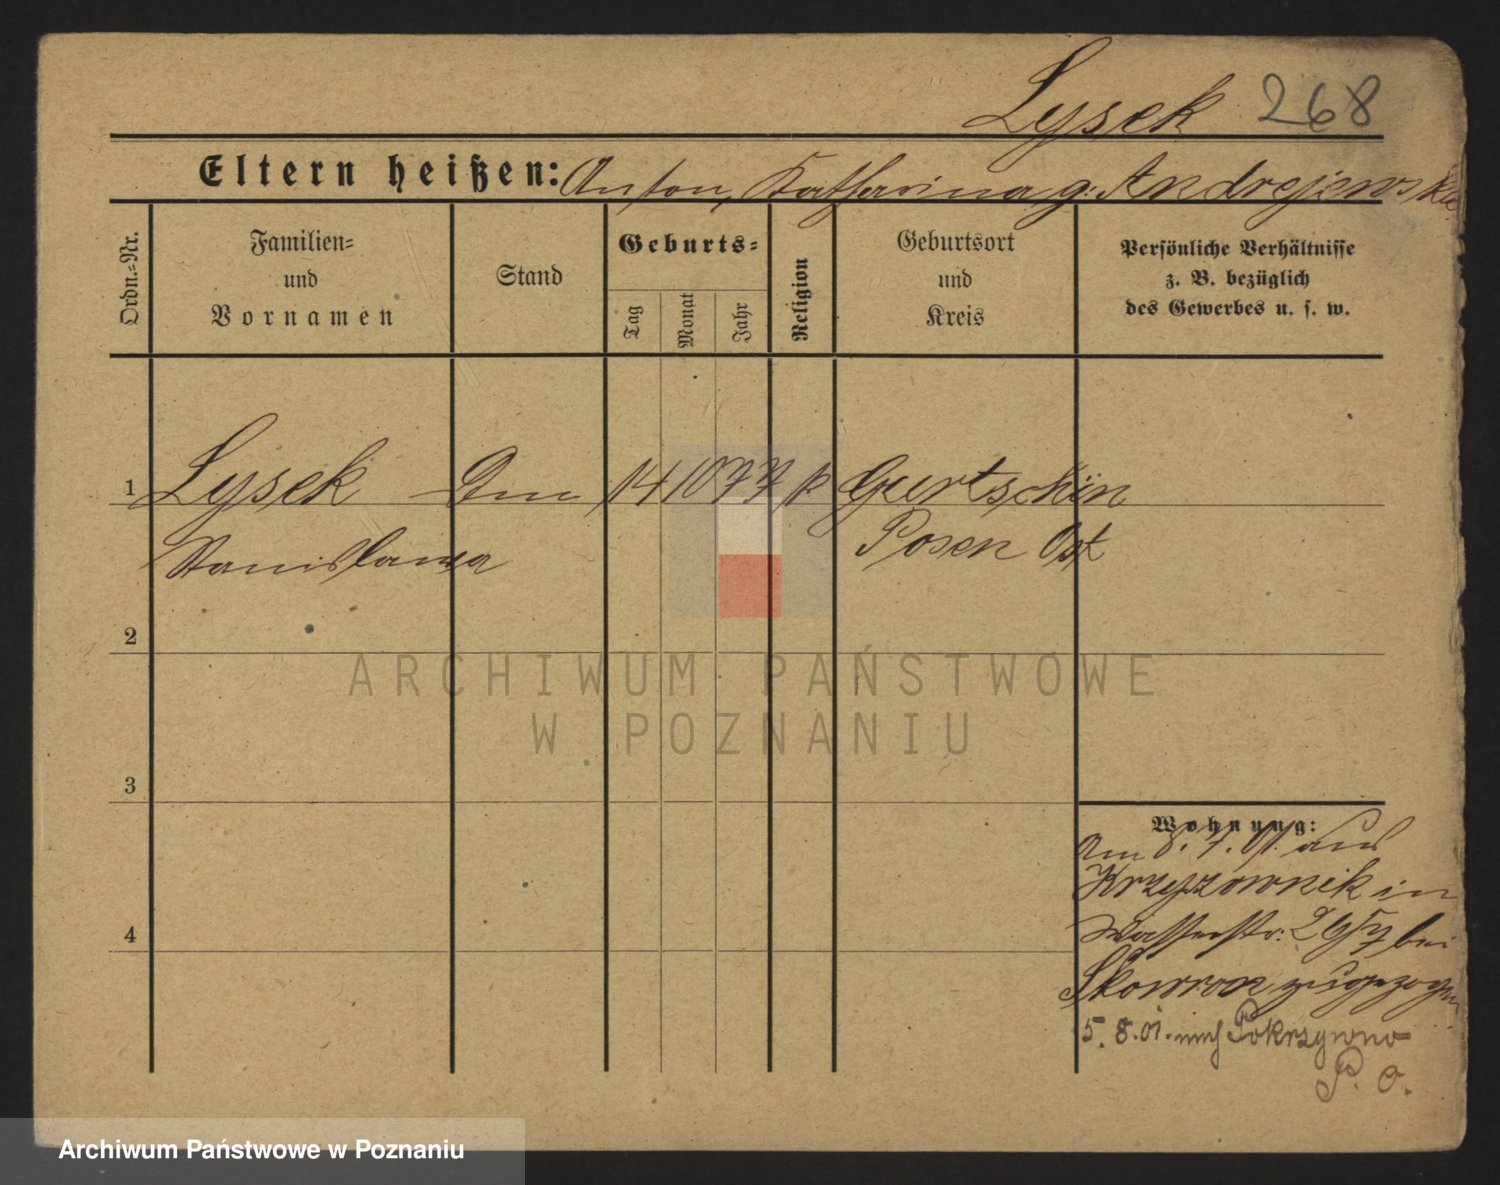 Lysek 268
Eltern heißen: Anton, Katharina g. Andrejewska
Ordn.-Nr.
Familien-
und
Vornamen
Stand
Geburts-
Tag
Monat
Jahr
Religion
Geburtsort
und
Kreis
Persönliche Verhältnisse
z. B. bezüglich
des Gewerbes u. s. w.
1 Lysek 14 10 77 k Gurtschin
Stanislawa Posen Ost
2
3
4
Wohnung:
Am 8. 7. 01. aus
Krzyzownik in
Wasserstr: bei
Skowron zugezogen
5. 8. 01. nach Pokrzywno
P. O.
ARCHIWUM PAŃSTWOWE
W POZNANIU
Archiwum Państwowe w Poznaniu